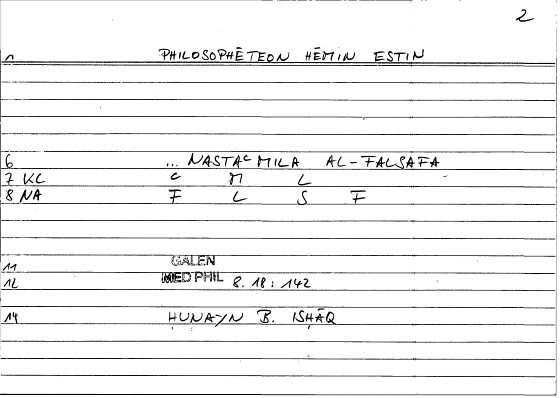 2
1 PHILOSOPHĒTEON HĒMIN ESTIN
6 ... NASTAᶜMILA AL-FALSAFA
7 KL C M L
8 NA F L S F
11 GALEN
12 MED PHIL 8.18:142
14 ḤUNAYN B. ISḤĀQ